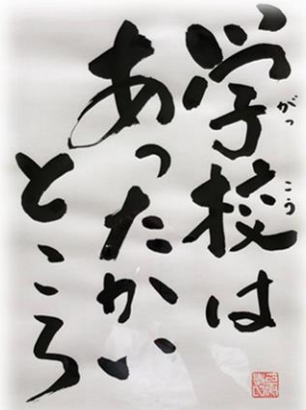 学校は
がっこう
あったかい
ところ